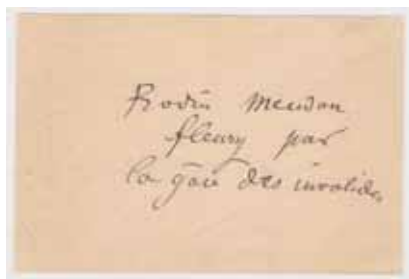 Rodin Meudon
fleury par
la gare des invalides